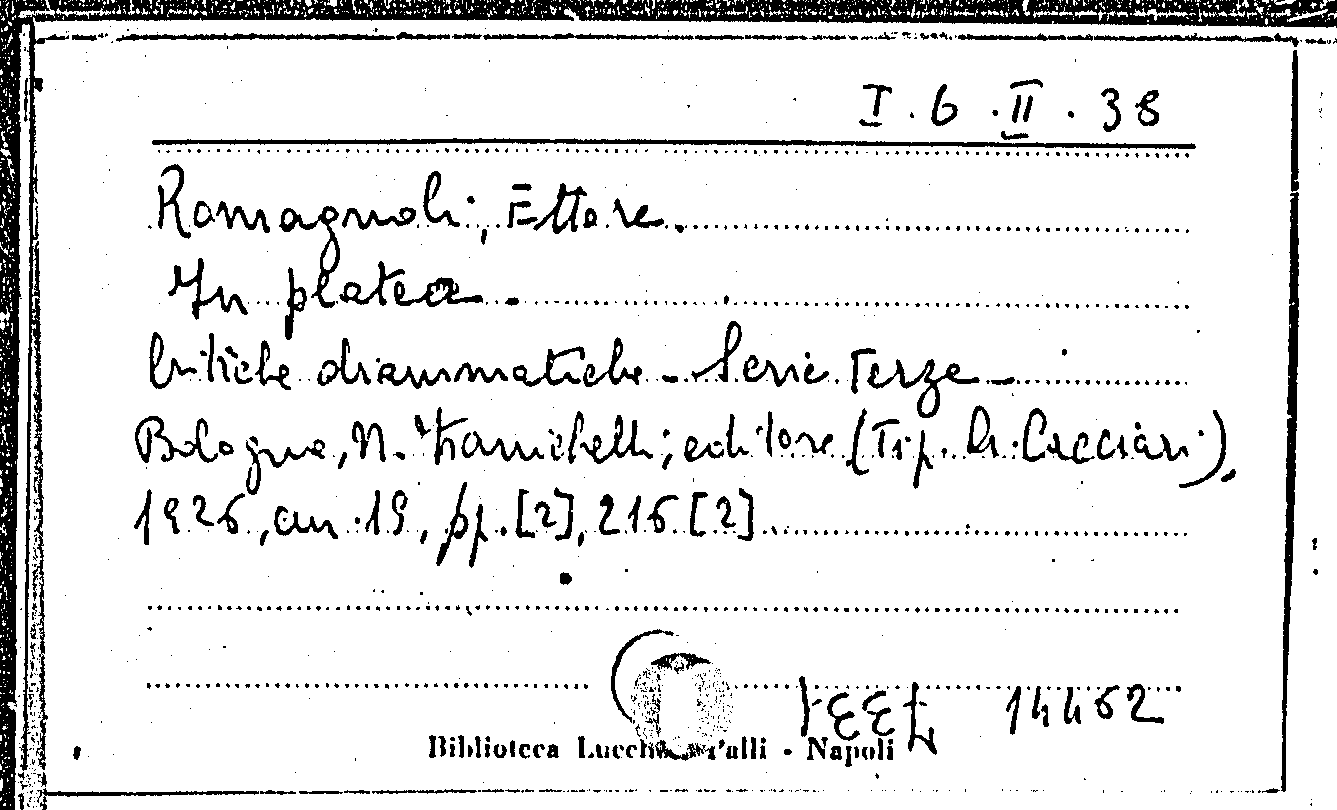 I. 6 . II . 38
Romagnoli, Ettore.
In platea.
Critiche drammatiche - Serie Terza -
Bologna, N. Zanichelli, editore (Tip. L. Cacciari),
1926, an. 19, pp. [2], 216 [2]
14462
Biblioteca Lucchesi Palli - Napoli